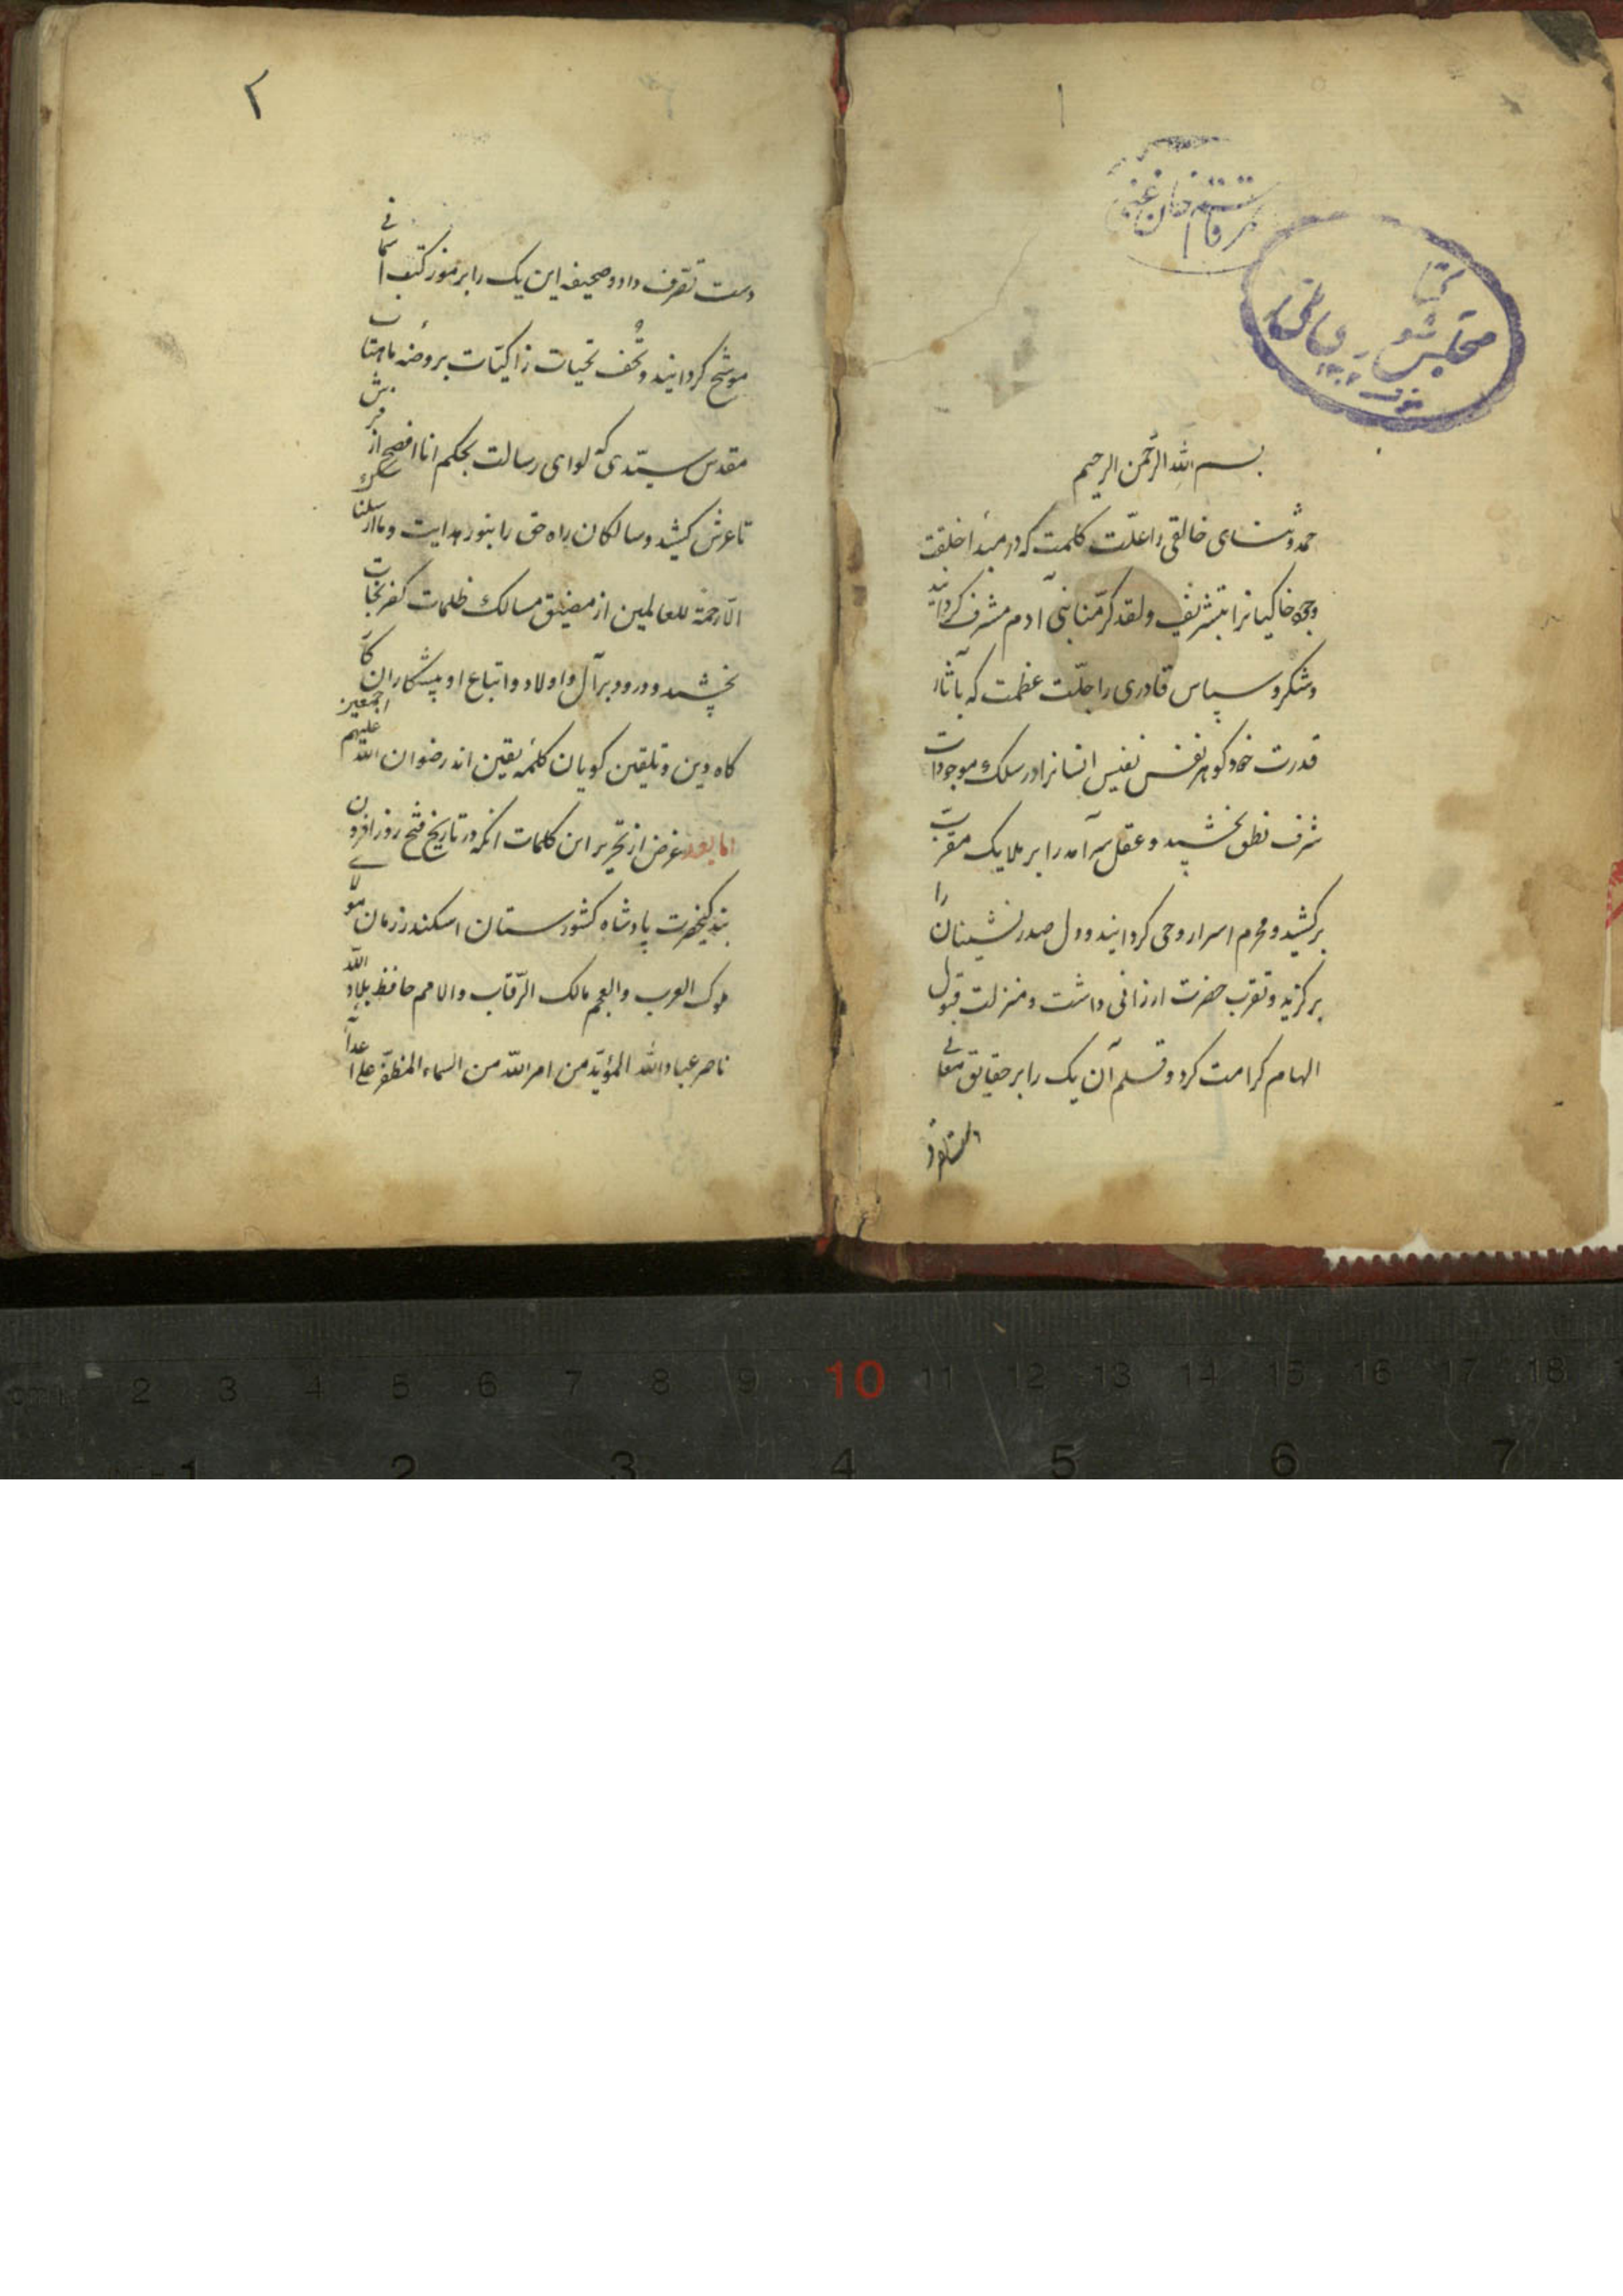 ۱
کتابخانه
مجلس شورای ملی
۱۳۰۲
بسم الله الرّحمن الرحیم
حمد و ثنای خالقی را علّت کلمت که در مبدأ خلقت
وجوه خاکیانرا بتشریف ولقد کرّمنا بنی آدم مشرف کردانید
و شکر و سپاس قادری را جلّت عظمت که بآثار
قدرت خود کوهر نفس نفیس انسانرا در سلک موجودات
شرف نطق بخشید و عقل سرآمد را بر ملایک مقرّب
برکشید و محرم اسرار وحی کردانید و دل صدرنشینان را
برکزید و تقرب حضرت ارزانی داشت و منزلت قبول
الهام کرامت کرد و قلم آن یک را بر حقایق معانی
۲
دست تصرف داد و صحیفه این یک را برموز کتب آسمانی
موشّح کردانید و تُحف تحیات زاکیّات بر روضهٔ ماهتاب
مقدس سیّدی که لوای رسالت بحکم انا افصح از فرش
تا عرش کشید و سالکان راه حق را بنور هدایت وما ارسلناک
الّا رحمة للعالمین از مضیق مسالک ظلمات کفر نجات
بخشید و درود بر آل و اولاد و اتباع او پیشکاران
کاه دین و تلقین کویان کلمهٔ یقین اند رضوان الله علیهم اجمعین
اما بعد غرض از تحریر این کلمات آنکه در تاریخ فتح روز افزون
بندکیحضرت پادشاه کشورستان اسکندر زمان مولای
ملوک العرب والعجم مالک الرّقاب والامم حافظ بلاد الله
ناصر عباد الله المؤیّد من امر الله من السماء المظفّر علی اعدا